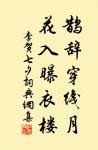 鹊辞穿线月
花入曝衣楼
李贺七夕词典网集